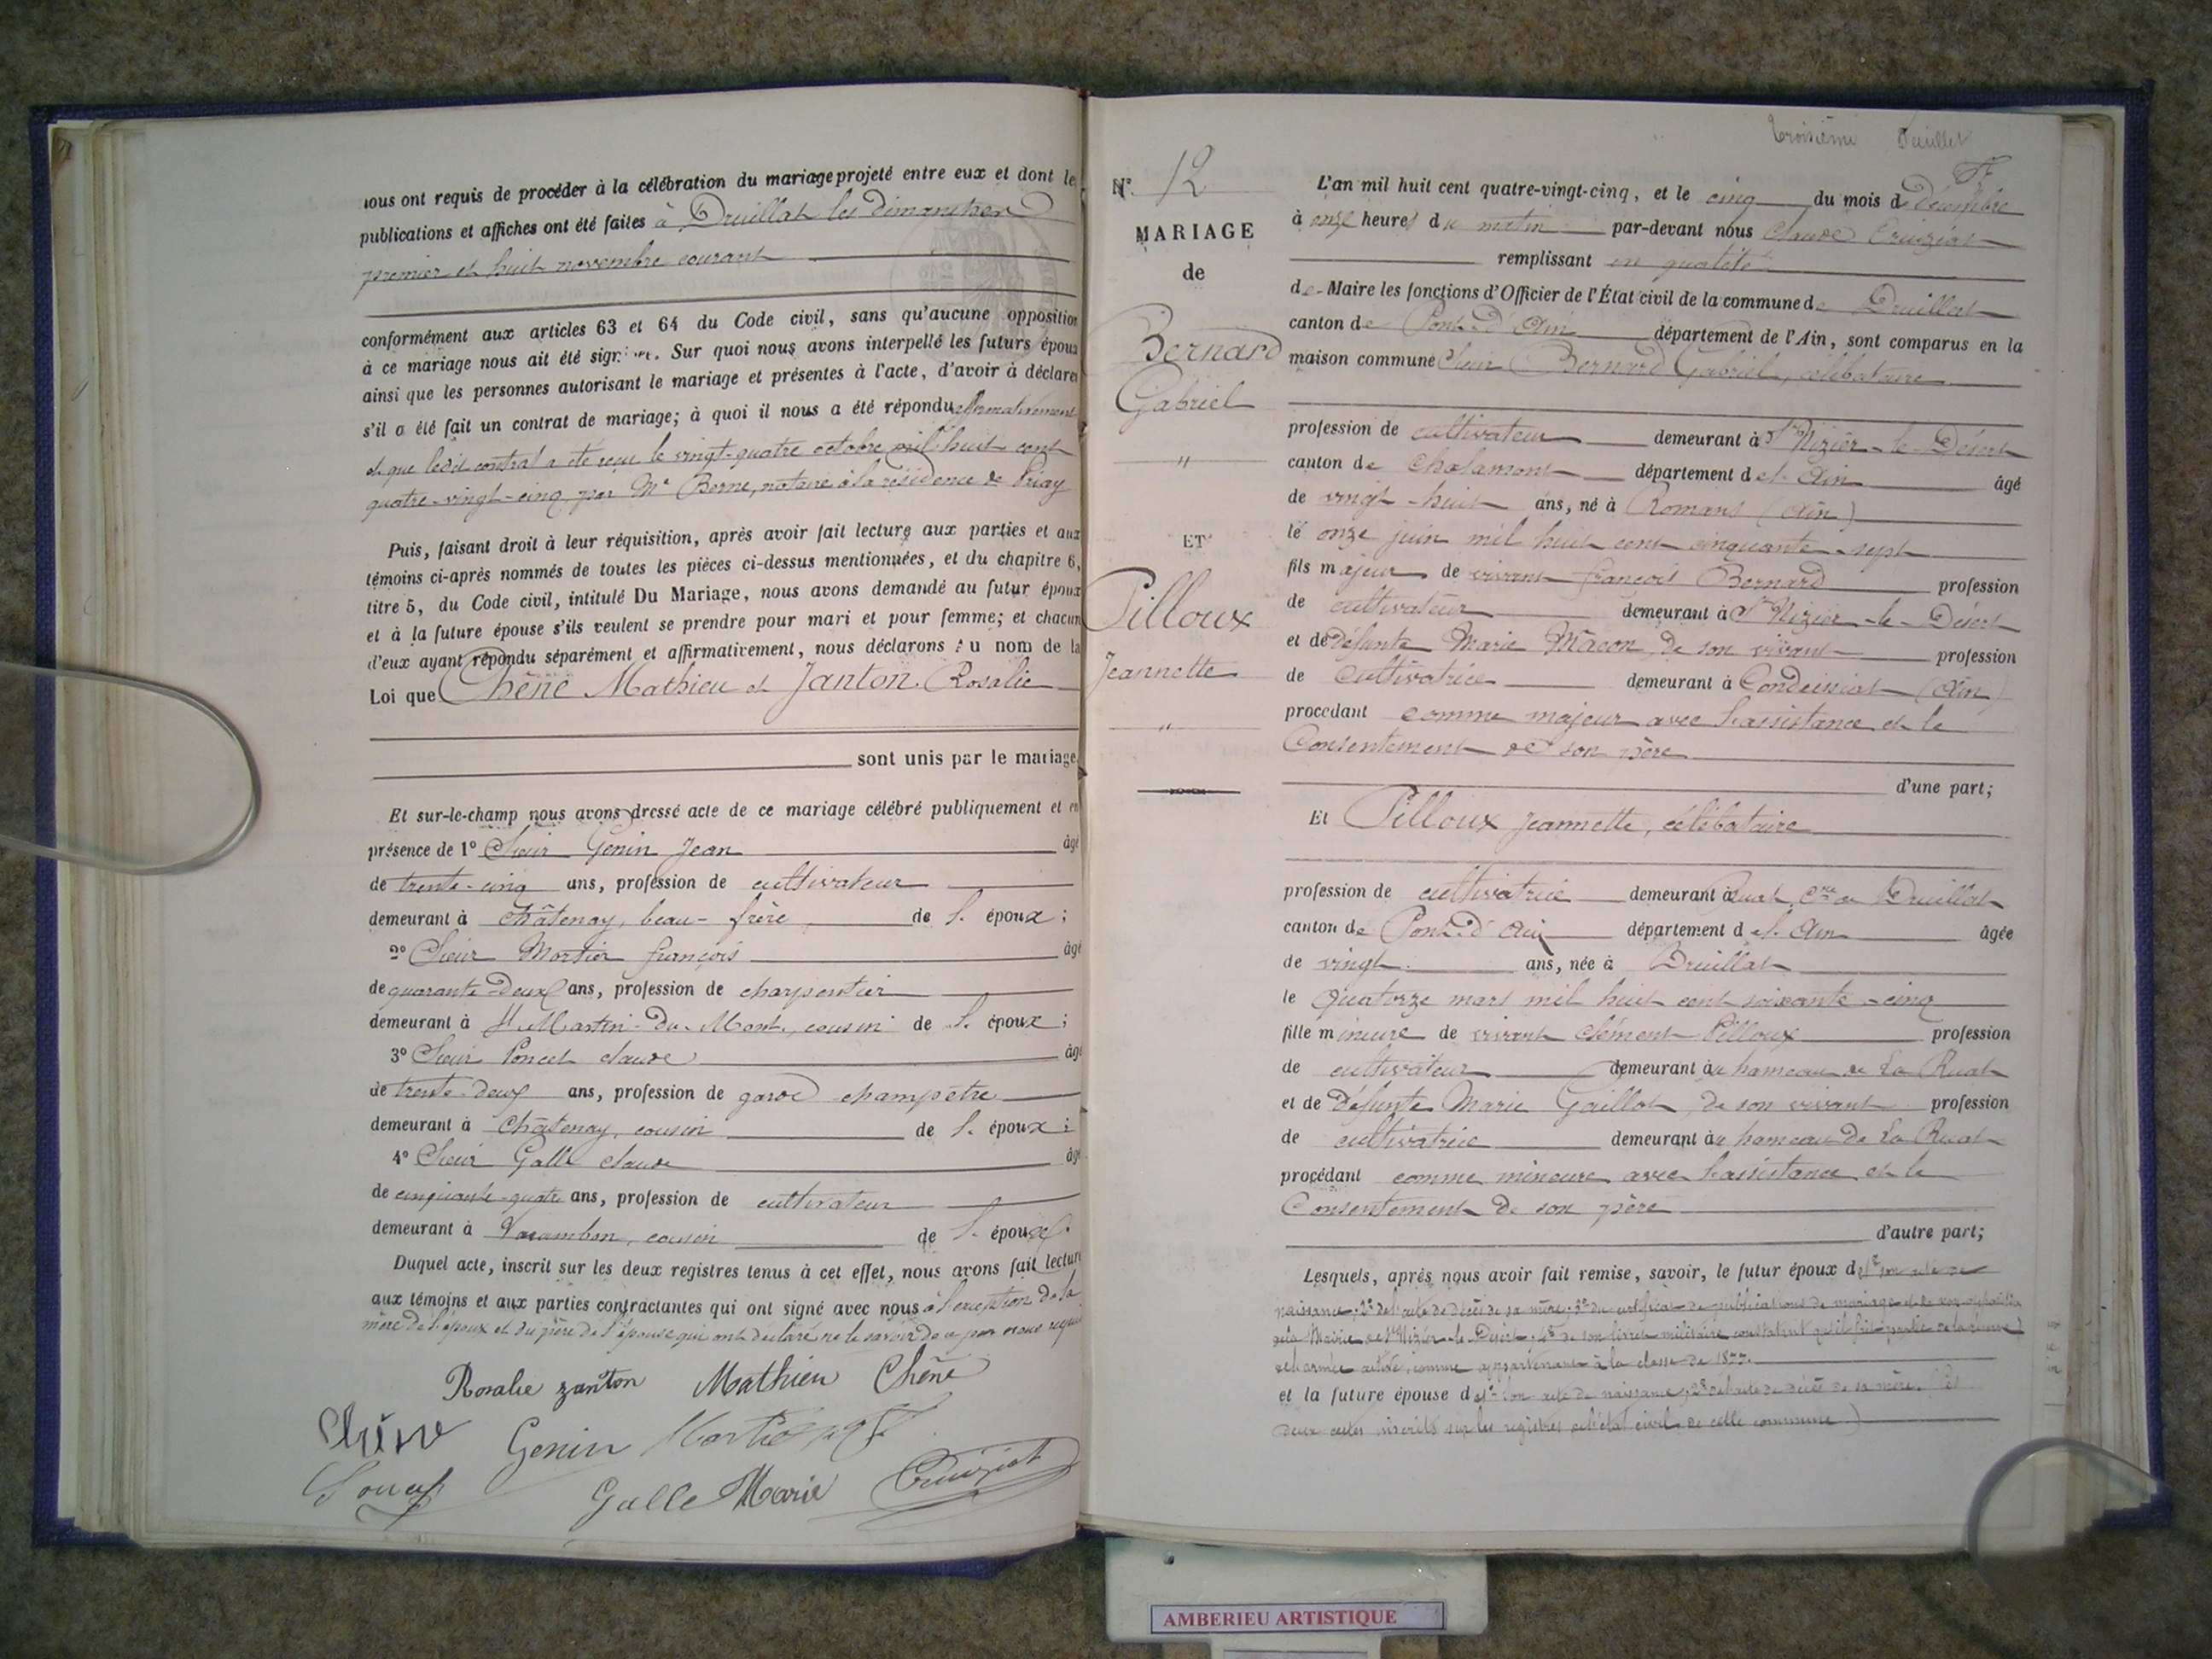 nous ont requis de procéder à la célébration du mariage projeté entre eux et dont les
publications et affiches ont été faites à Druillat les dimanches
premier et huit novembre courant
conformément aux articles 63 et 64 du Code civil, sans qu'aucune opposition
à ce mariage nous ait été signifiée. Sur quoi nous avons interpellé les futurs époux
ainsi que les personnes autorisant le mariage et présentes à l'acte, d'avoir à déclarer
s'il a été fait un contrat de mariage; à quoi il nous a été répondu affirmativement
et que ledit contrat a été reçu le vingt-quatre octobre mil huit cent
quatre-vingt-cinq, par Me Berne, notaire à la résidence de Priay
Puis, faisant droit à leur réquisition, après avoir fait lecture aux parties et aux
témoins ci-après nommés de toutes les pièces ci-dessus mentionnées, et du chapitre 6,
titre 5, du Code civil, intitulé Du Mariage, nous avons demandé au futur époux
et à la future épouse s'ils veulent se prendre pour mari et pour femme; et chacun
d'eux ayant répondu séparément et affirmativement, nous déclarons au nom de la
Loi que Chêne Mathieu et Janton Rosalie
sont unis par le mariage.
Et sur-le-champ nous avons dressé acte de ce mariage célébré publiquement et en
présence de 1° Sieur Genin Jean âgé
de trente-cinq ans, profession de cultivateur
demeurant à Châtenay, beau-frère de l'époux;
2° Sieur Mortier françois âgé
de quarante-deux ans, profession de charpentier
demeurant à St Martin-du-Mont, cousin de l'époux;
3° Sieur Poncet claude âgé
de trente-deux ans, profession de garde champêtre
demeurant à Châtenay, cousin de l'époux;
4° Sieur Galle claude âgé
de cinquante-quatre ans, profession de cultivateur
demeurant à Varambon, cousin de l'épouse.
Duquel acte, inscrit sur les deux registres tenus à cet effet, nous avons fait lecture
aux témoins et aux parties contractantes qui ont signé avec nous à l'exception de la
mère de l'époux et du père de l'épouse qui ont déclaré ne le savoir de ce par nous requis
Rosalie zanton Mathieu Chêne
Chêne Genin Mortier
Galle Marie Cruiziat
Troisième Feuillet
N° 12
MARIAGE
de
Bernard
Gabriel
"
ET
Pilloux
Jeannette
"
L'an mil huit cent quatre-vingt-cinq, et le cinq du mois de décembre
à onze heures du matin par-devant nous Claude Cruiziat
remplissant en qualité
de Maire les fonctions d'Officier de l'État civil de la commune de Druillat
canton de Pont-d'Ain département de l'Ain, sont comparus en la
maison commune Sieur Bernard Gabriel, célibataire
profession de cultivateur demeurant à St Nizier-le-Désert
canton de Chalamont département de l'Ain âgé
de vingt-huit ans, né à Romans (Ain)
le onze juin mil huit cent cinquante-sept
fils majeur de vivant françois Bernard profession
de cultivateur demeurant à St Nizier-le-Désert
et de défunte Marie Mâcon, de son vivant profession
de Cultivatrice demeurant à Condeissiat (Ain)
procédant comme majeur avec l'assistance et le
Consentement de son père
d'une part;
Et Pilloux Jeannette, célibataire
profession de cultivatrice demeurant à Ruat, Cne de Druillat
canton de Pont-d'Ain département de l'Ain âgée
de vingt ans, née à Druillat
le quatorze mars mil huit cent soixante-cinq
fille mineure de vivant Clément Pilloux profession
de cultivateur demeurant au hameau de La Ruat
et de défunte Marie Gaillot, de son vivant profession
de cultivatrice demeurant au hameau de La Ruat
procédant comme mineure avec l'assistance et le
Consentement de son père
d'autre part;
Lesquels, après nous avoir fait remise, savoir, le futur époux de 1° son acte de
naissance; 2° de l'acte de décès de sa mère; 3° du certificat de publications de mariage et de non opposition
de la Mairie de St Nizier-le-Désert; 4° de son livret militaire constatant qu'il fait partie de la réserve
de l'armée active, comme appartenant à la classe de 1877.
et la future épouse de 1° son acte de naissance; 2° de l'acte de décès de sa mère. (Les
deux actes inscrits sur les registres de l'état civil de cette commune)
AMBERIEU ARTISTIQUE